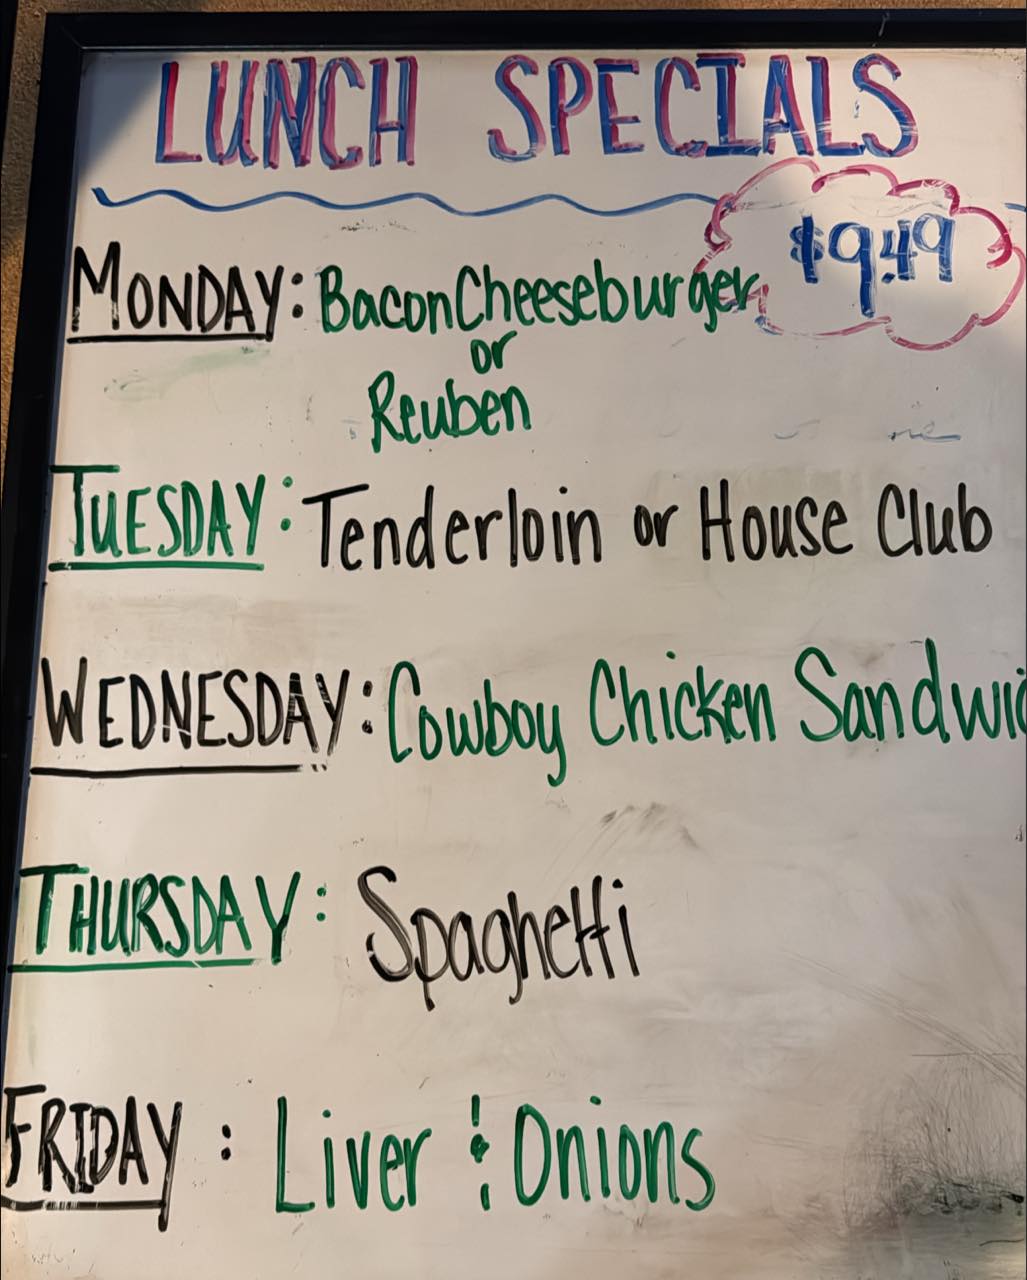 LUNCH SPECIALS
$9.49
MONDAY: Bacon Cheeseburger
or
Reuben
TUESDAY: Tenderloin or House Club
WEDNESDAY: Cowboy Chicken Sandwi
THURSDAY: Spaghetti
FRIDAY: Liver & Onions